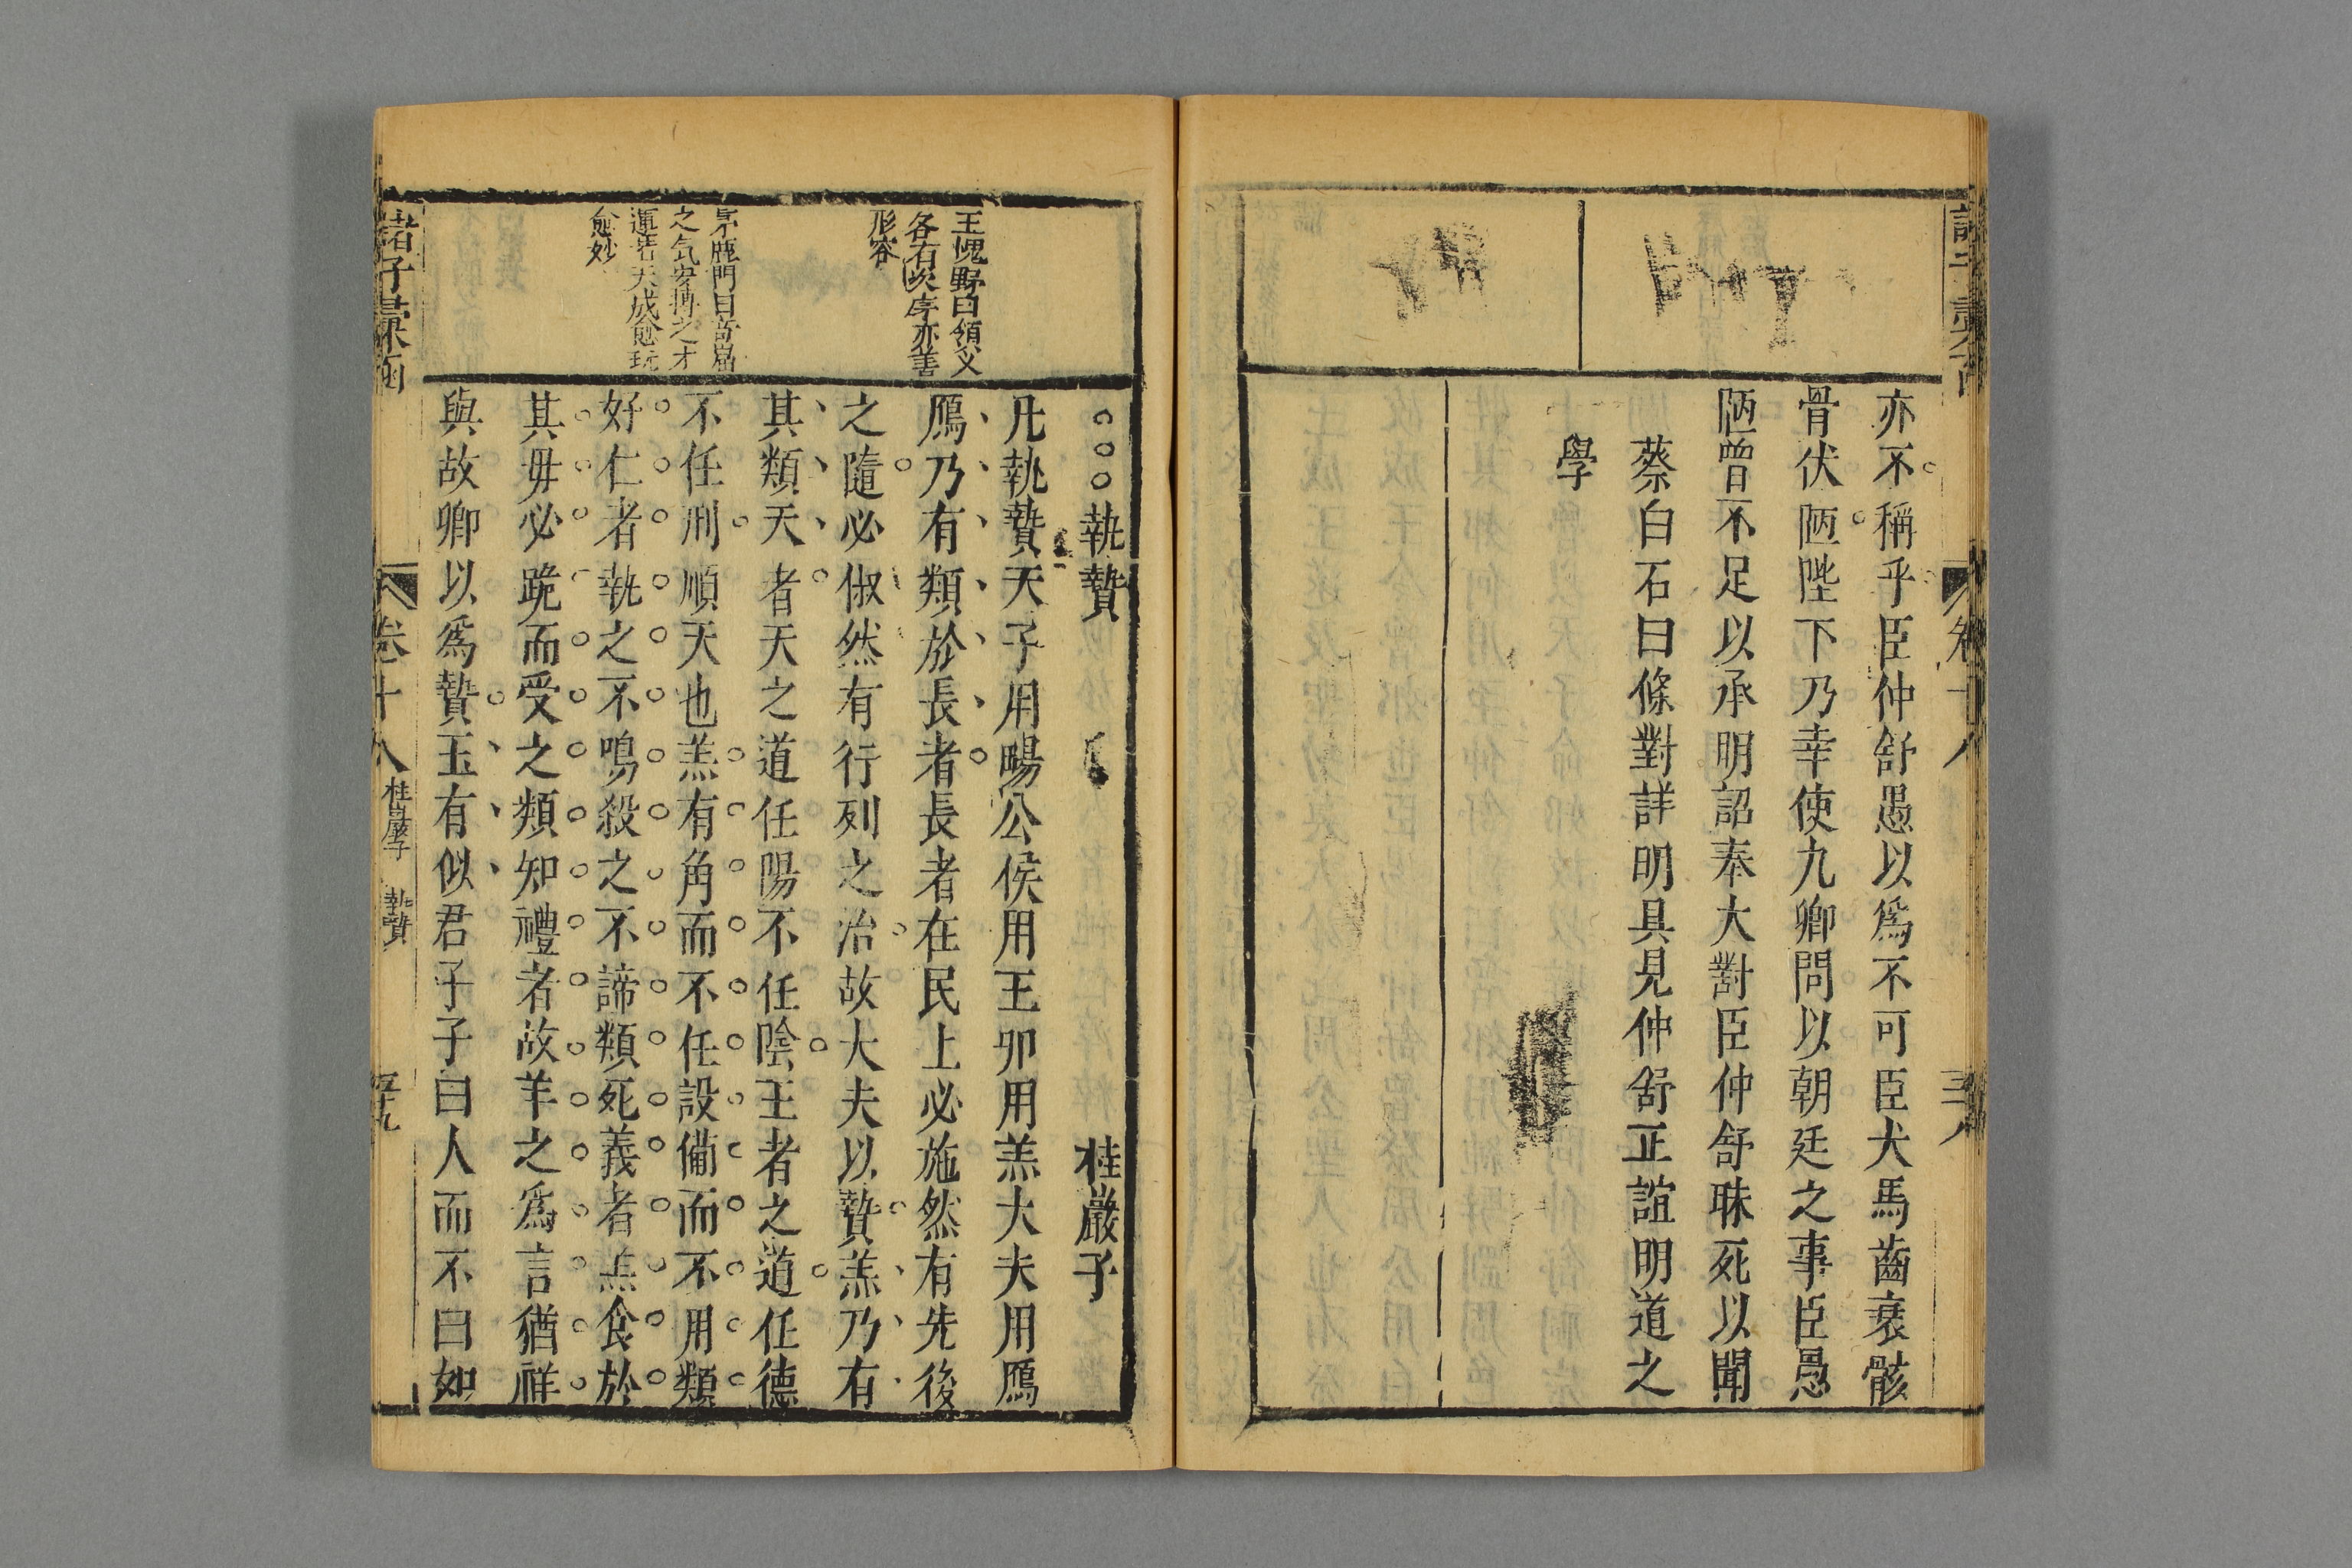 亦不稱乎臣仲舒愚以爲不可臣犬馬齒衰骸
骨伏陋陛下乃幸使九卿問以朝廷之事臣愚
陋曾不足以承明詔奉大對臣仲舒昧死以聞
蔡白石曰條對詳明具見仲舒正誼明道之
學
卷十八
三八
王愧野曰領义
各有次序亦善
形容
茅鹿門曰奇崛
之气宏博之才
運若天成愈玩
愈妙
執贄
桂巖子
凡執贄天子用暢公侯用玉卿用羔大夫用鴈
鴈乃有類於長者長者在民上必施然有先後
之隨必俶然有行列之治故大夫以贄羔乃有
其類天者天之道任陽不任陰王者之道任德
不任刑順天也羔有角而不任設備而不用類
好仁者執之不鳴殺之不諦類死義者羔食於
其母必跪而受之類知禮者故羊之爲言猶祥
與故卿以爲贄玉有似君子子曰人而不曰如
諸子彙函
卷十八
桂巖子
執贄
三十九